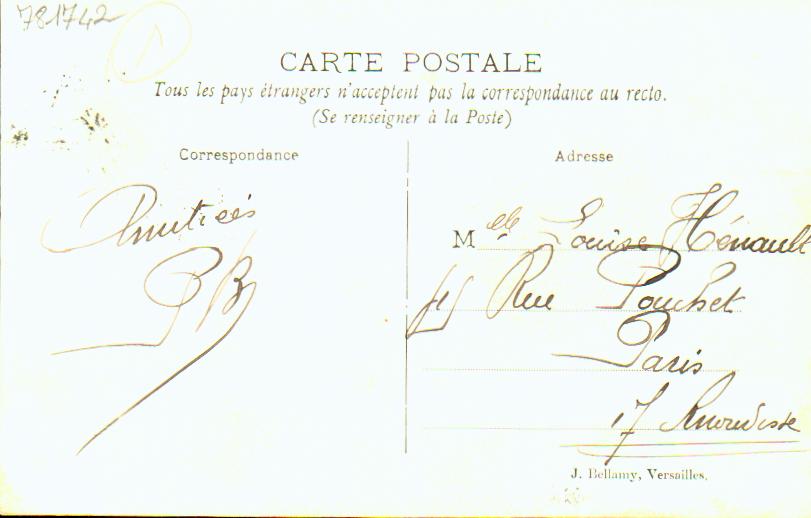 781742
1
CARTE POSTALE
Tous les pays étrangers n'acceptent pas la correspondance au recto.
(Se renseigner à la Poste)
Correspondance
Adresse
Amitiés
PB
Melle Louise Hénault
Rue Pouchet
Paris
17
J. Bellamy, Versailles.